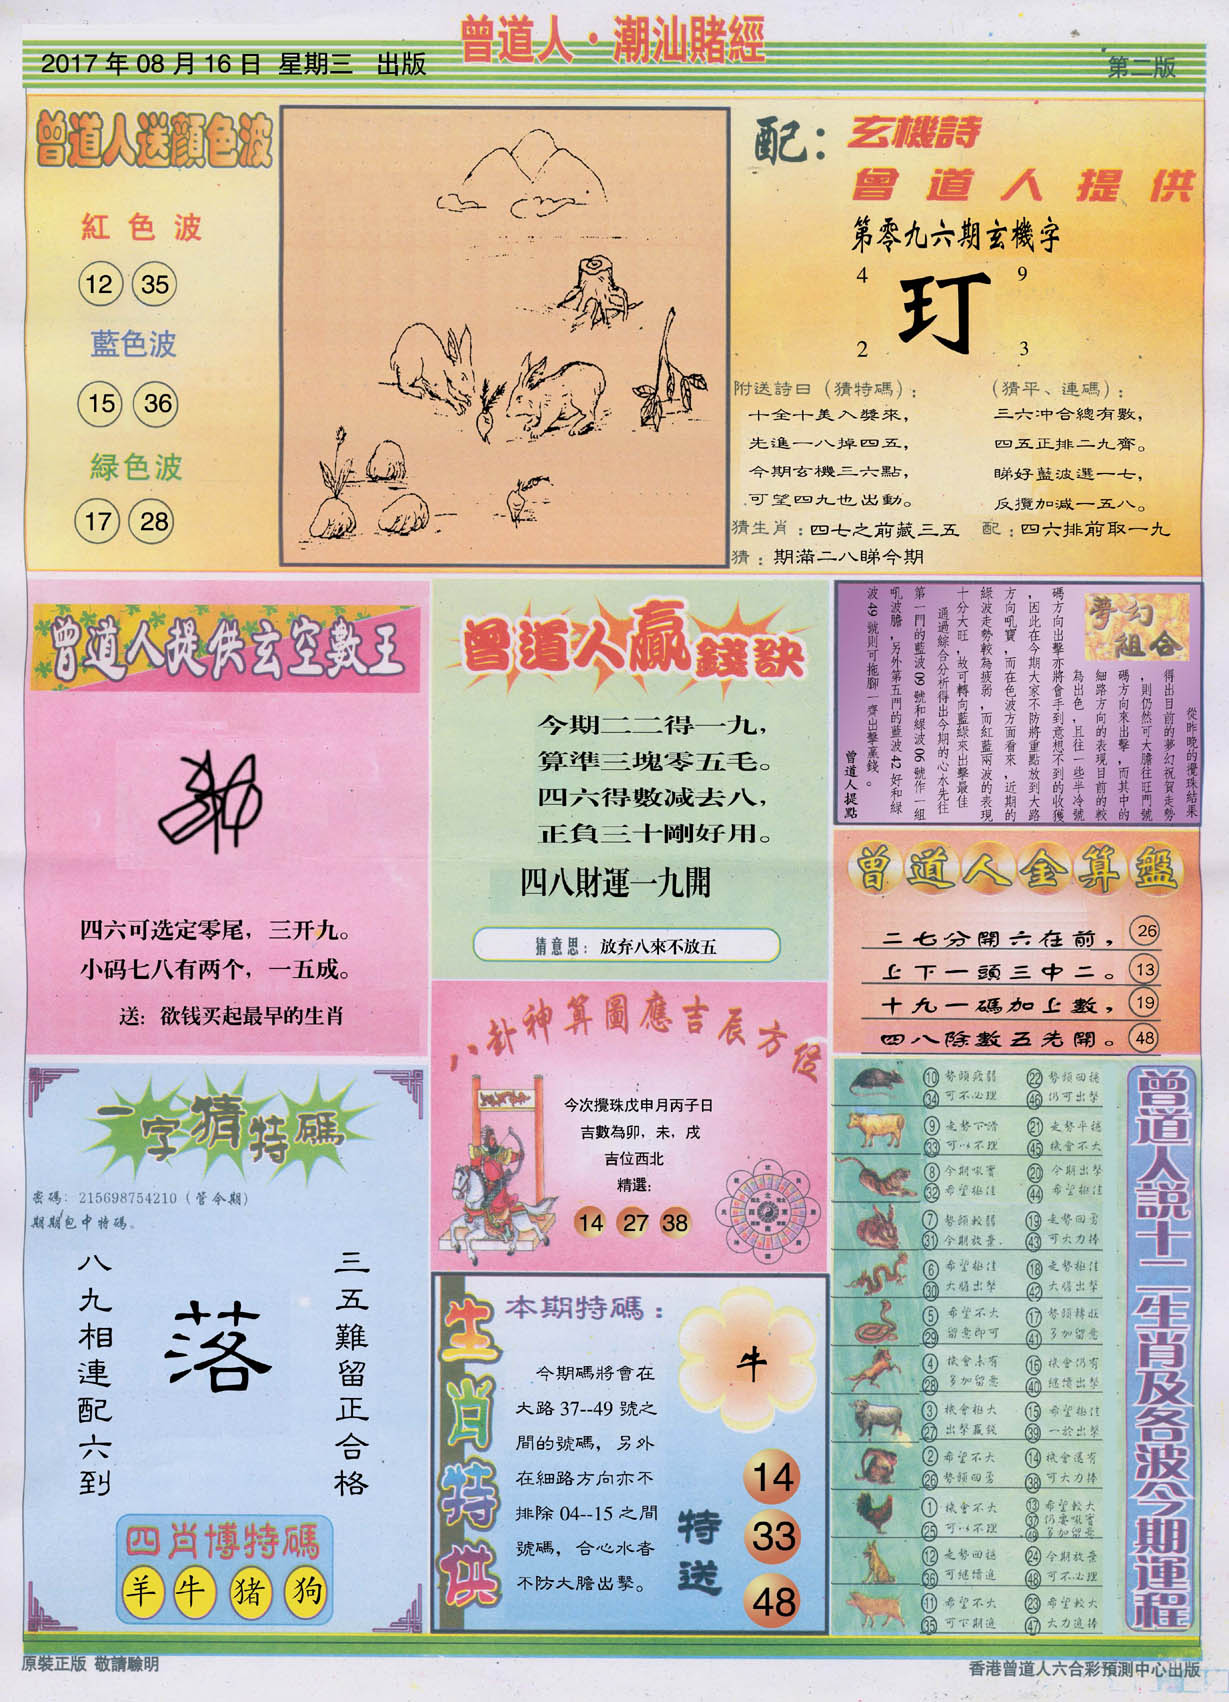 曾道人·潮汕賭經
2017年08月16日 星期三 出版
第二版
曾道人送顏色波
紅色波
12 35
藍色波
15 36
緑色波
17 28
配：
玄機詩
曾道人提供
第零九六期玄機字
4 9
玎
2 3
附送詩曰（猜特碼）：
十全十美入獎來，
先進一八掉四五，
今期玄機三六點，
可望四九也出動。
（猜平、連碼）：
三六冲合總有數，
四五正排二九齊。
睇好藍波選一七，
反攬加減一五八。
猜生肖：四七之前藏三五
配：四六排前取一九
猜：期滿二八睇今期
曾道人提供玄空數王
四六可选定零尾，三开九。
小码七八有两个，一五成。
送：欲钱买起最早的生肖
曾道人贏錢訣
今期二二得一九，
算準三塊零五毛。
四六得數減去八，
正負三十剛好用。
四八財運一九開
猜意思：放弃八來不放五
夢幻組合
從昨晚的攪珠結果
得出目前的夢幻祝賀走勢
，則仍然可大膽往旺門號
碼方向來出擊，而其中的
細路方向的表現目前的較
為出色，且往一些半冷號
碼方向出擊亦將會手到意想不到的收獲
，因此在今期大家不防將重點放到大路
方向吼寶，而在色波方面看來，近期的
綠波走勢較為疲弱，而紅藍兩波的表現
十分大旺，故可轉向藍綠來出擊最佳
通過綜合分析得出今期的心水先往
第一門的藍波09號和綠波06號作一組
吼波膽，另外第五門的藍波42好和綠
波49號則可拖腳一齊出擊贏錢。
曾道人提點
曾道人金算盤
二七分開六在前， 26
上下一頭三中二。 13
十九一碼加上數， 19
四八除數五先開。 48
八卦神算圖應吉辰方位
今次攪珠戊申月丙子日
吉數為卯，未，戌
吉位西北
精選：
14 27 38
一字猜特碼
密碼：215698754210（管令期）
期期包中特碼。
三五難留正合格
落
八九相連配六到
四肖博特碼
羊 牛 猪 狗
生肖特供
本期特碼：
今期碼將會在
大路37--49號之
間的號碼，另外
在細路方向亦不
排除04--15之間
號碼，合心水者
不防大膽出擊。
牛
特送
14
33
48
曾道人説十二生肖及各波今期運程
10 34 勢頭疲弱 可不必理
22 46 勢頭回穩 仍可出擊
9 33 走勢下滑 可以不理
21 45 走勢平穩 機會不大
8 32 今期吼寶 希望極佳
20 44 今期出擊 希望極佳
7 31 勢頭較弱 今期放棄
19 43 走勢回勇 可大力捧
6 30 希望極佳 大膽出擊
18 42 走勢極佳 大膽出擊
5 29 希望不大 留意即可
17 41 勢頭轉旺 多加留意
4 28 機會未有 多加留意
16 40 機會仍有 繼續出擊
3 27 機會極大 出擊贏錢
15 39 希望極佳 一於出擊
2 26 希望不大 勢頭回勇
14 38 機會還有 可大力捧
1 25 機會不大 可以不理
13 37 49 希望較大 仍要吼寶 多加留意
12 36 走勢回穩 可繼續追
24 48 今期放棄 可不必理
11 35 希望不大 可下期追
23 47 希望較大 大力追捧
原裝正版 敬請驗明
香港曾道人六合彩預測中心出版